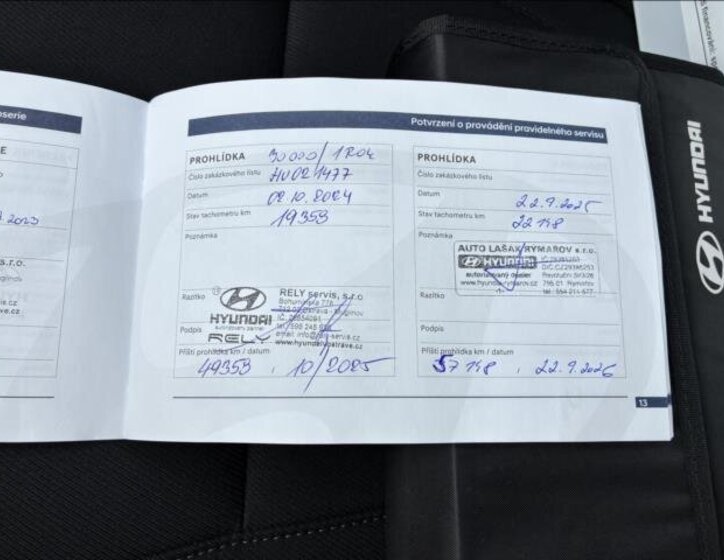 serie
E
2023
s.r.o.
.cz
.cz
Potvrzení o provádění pravidelného servisu
PROHLÍDKA 30000/1ROK
Číslo zakázkového listu HU021477
Datum 02.10.2024
Stav tachometru km 19353
Poznámka
Razítko
HYUNDAI
RELY
RELY servis, s.r.o.
Bohumínská 776
www.hyundaiostrava.cz
Podpis
Příští prohlídka km / datum
49353 , 10/2025
PROHLÍDKA
Číslo zakázkového listu
Datum 22.9.2025
Stav tachometru km 22198
Poznámka
AUTO LAŠÁK RYMAŘOV s.r.o.
HYUNDAI
autorizovaný dealer
www.hyundai-rymarov.cz
795 01 Rymařov
Razítko
Podpis
Příští prohlídka km / datum
57198 , 22.9.2026
13
HYUNDAI